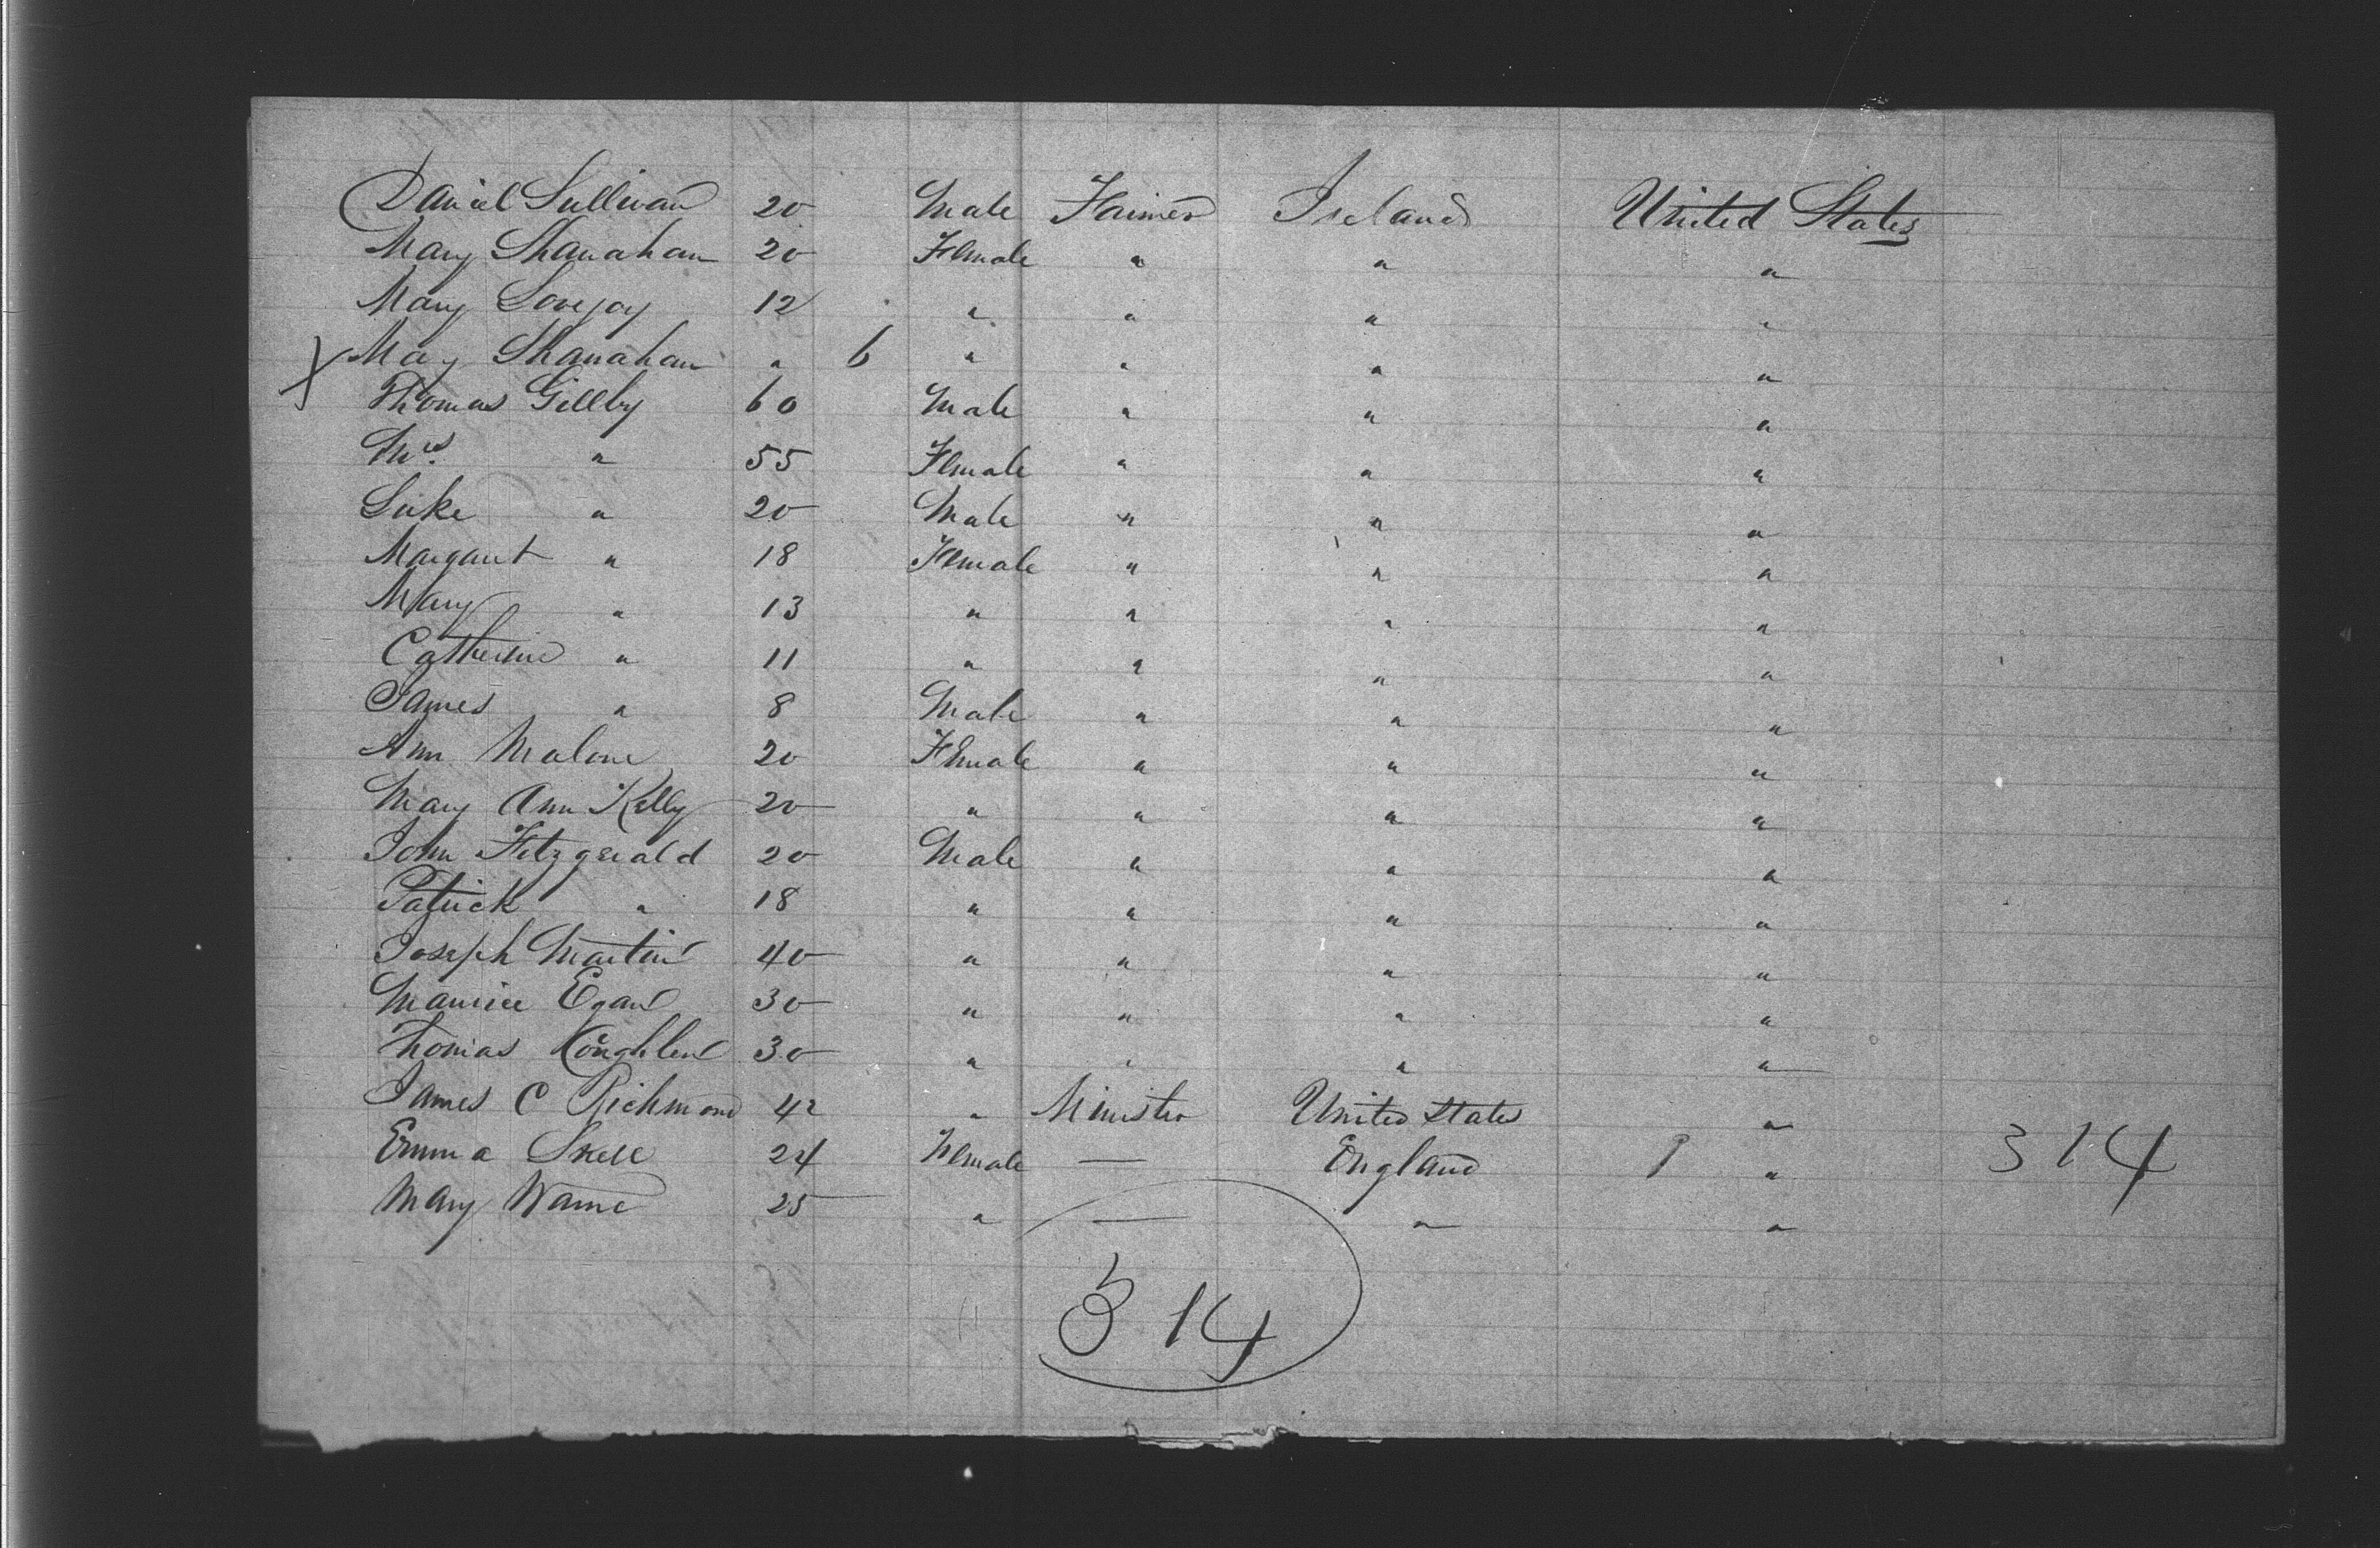 Daniel Sullivan 20 Male Farmer Ireland United States
Mary Shanahan 20 Female " " "
Mary Lovejoy 12 " " " "
X Mary Shanahan " 6 " " " "
Thomas Gillby 60 Male " " "
Mrs. " 55 Female " " "
Luke " 20 Male " " "
Margaret " 18 Female " " "
Mary " 13 " " " "
Catherine " 11 " " " "
James " 8 Male " " "
Ann Malone 20 Female " " "
Mary Ann Kelly 20 " " " "
John Fitzgerald 20 Male " " "
Patrick " 18 " " " "
Joseph Martin 40 " " " "
Maurice Egan 30 " " " "
Thomas Coughlen 30 " " " "
James C Richmond 42 " Minister United States "
Emma 24 Female — England " 314
Mary Warne 25 " — " "
314